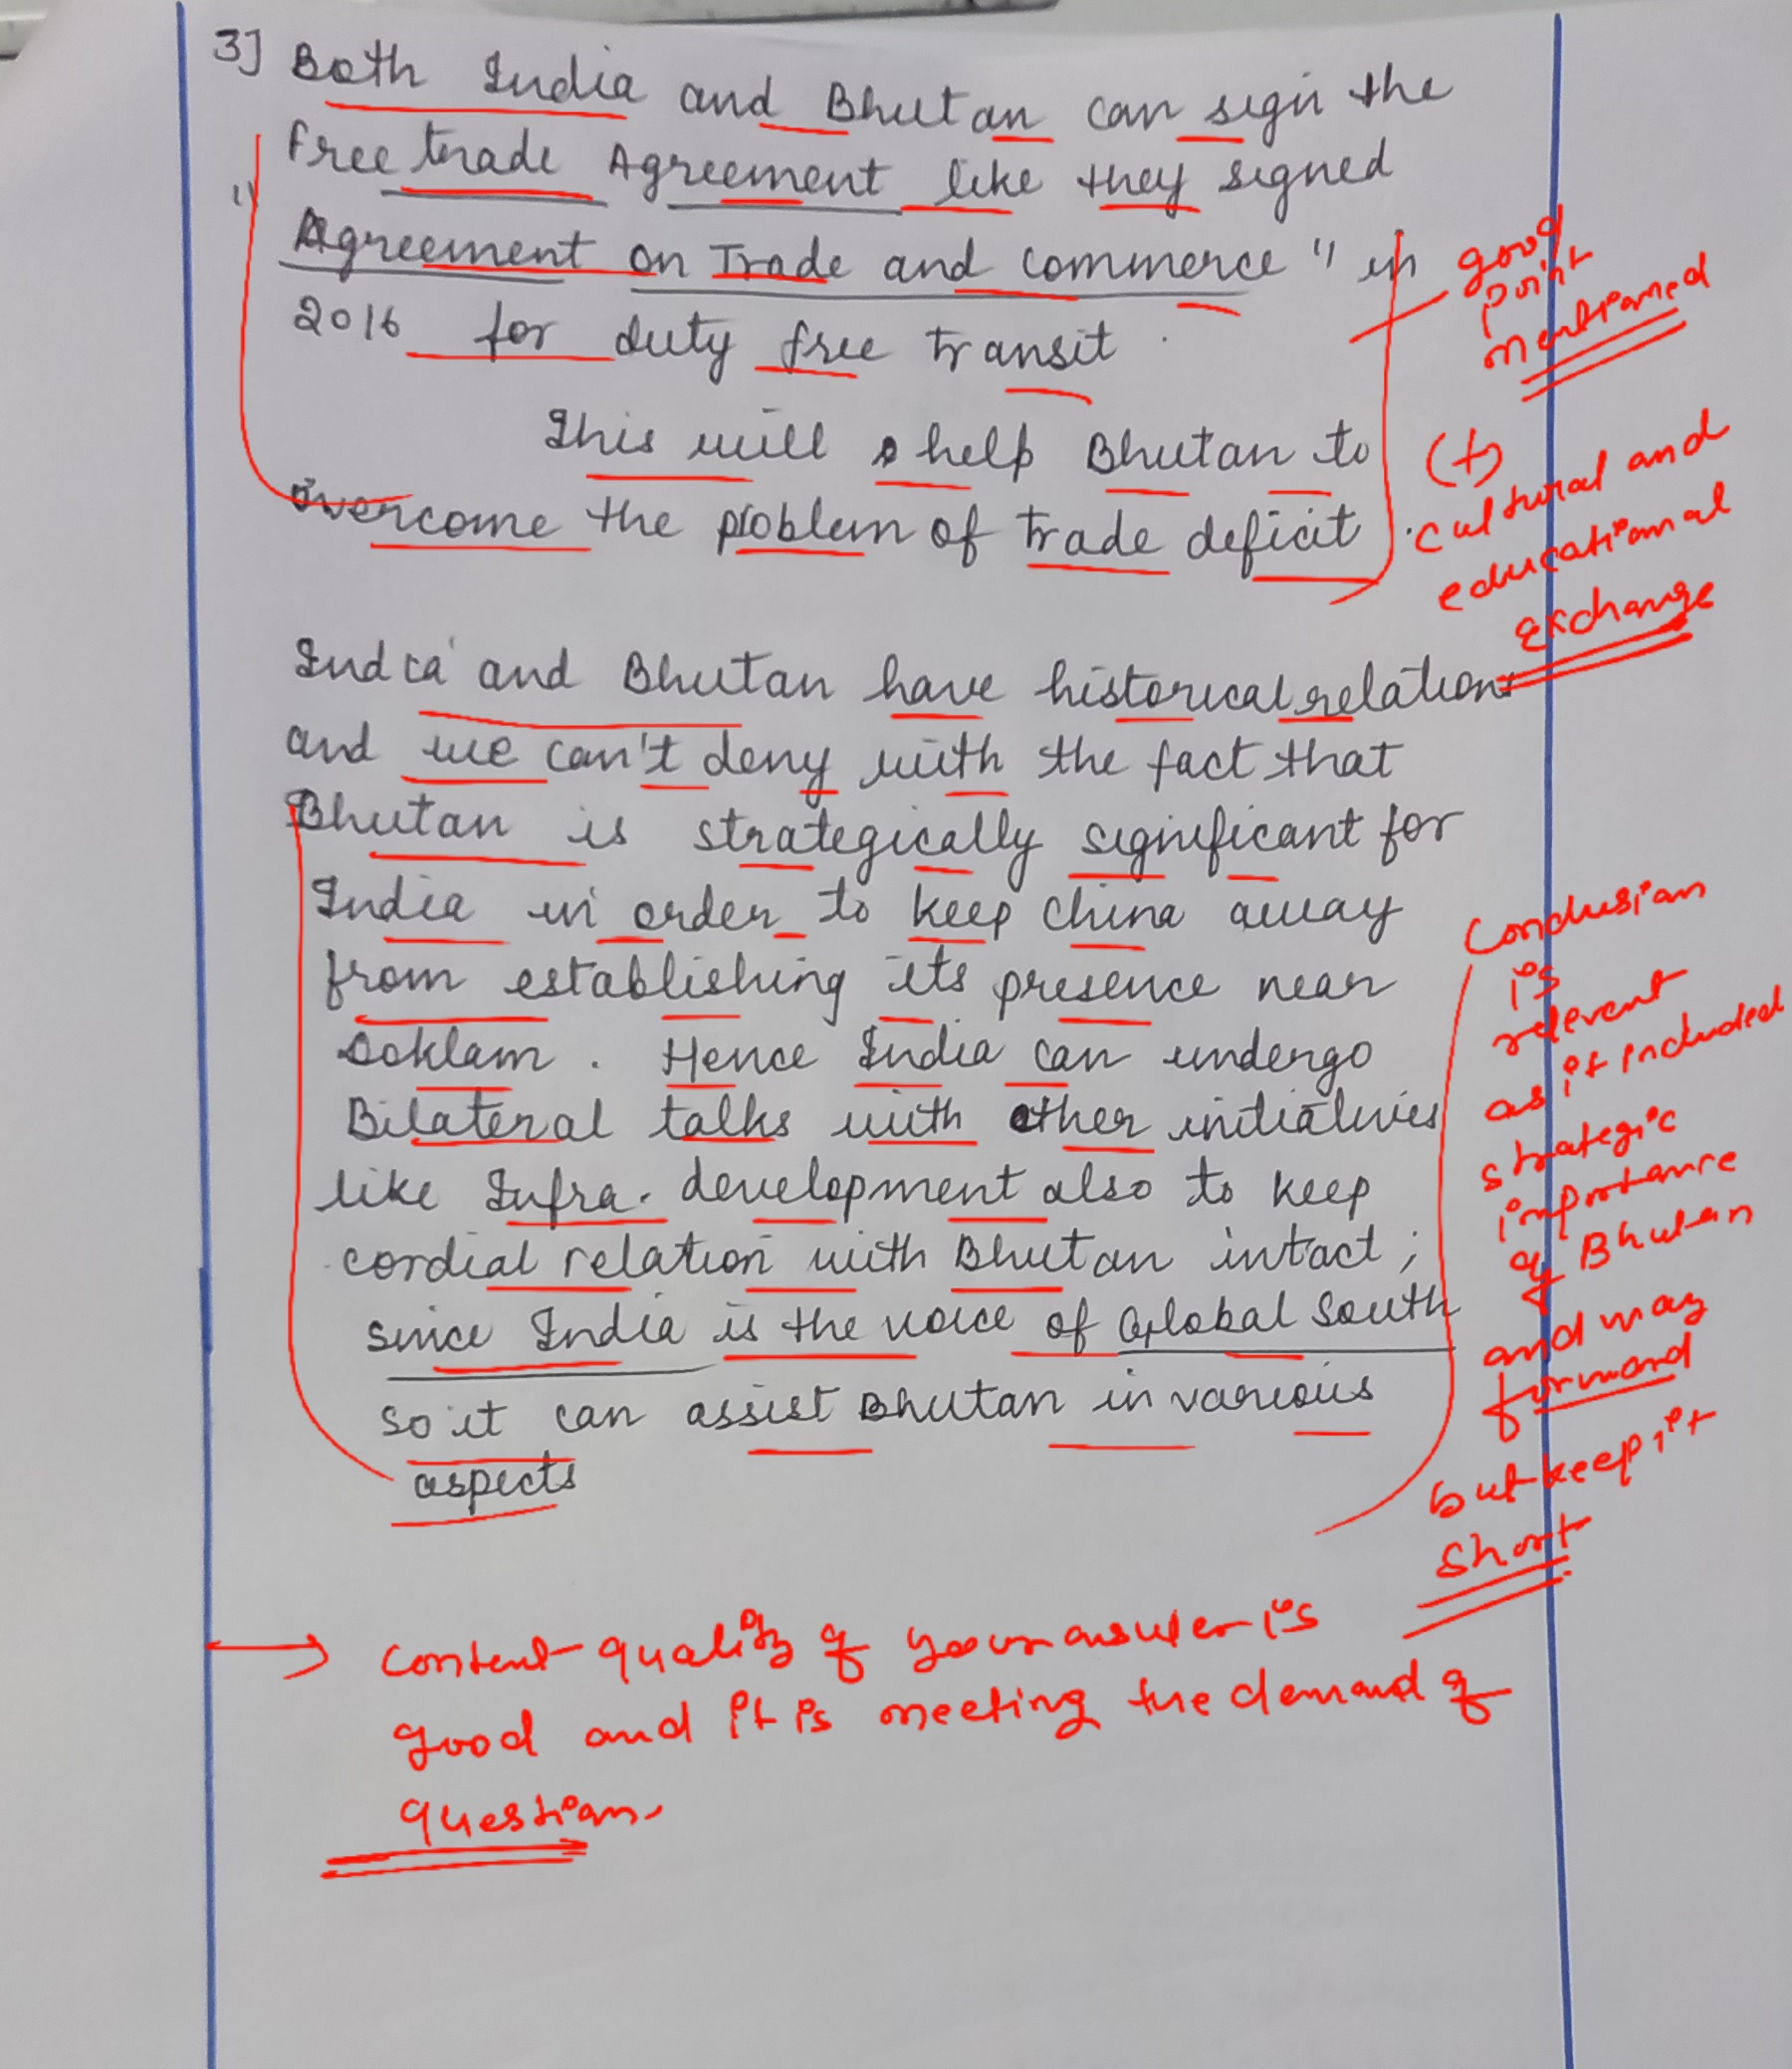 3] Both India and Bhutan can sign the
free trade Agreement like they signed
1)
Agreement on Trade and commerce" in
2016 for duty free transit.
good
point
mentioned
This will help Bhutan to
overcome the problem of trade deficit.
(+)
cultural and
educational
exchange
India and Bhutan have historical relations
and we can't deny with the fact that
Bhutan is strategically significant for
India in order to keep China away
from establishing its presence near
Doklam. Hence India can undergo
Bilateral talks with other initiatives
like Infra. development also to keep
cordial relation with Bhutan intact;
since India is the voice of Global South
so it can assist Bhutan in various
aspects
Conclusion
is
relevent
as it included
strategic
importance
of Bhutan
and way
forward
but keep it
short
→ content quality of your answer is
good and it is meeting the demand of
question.